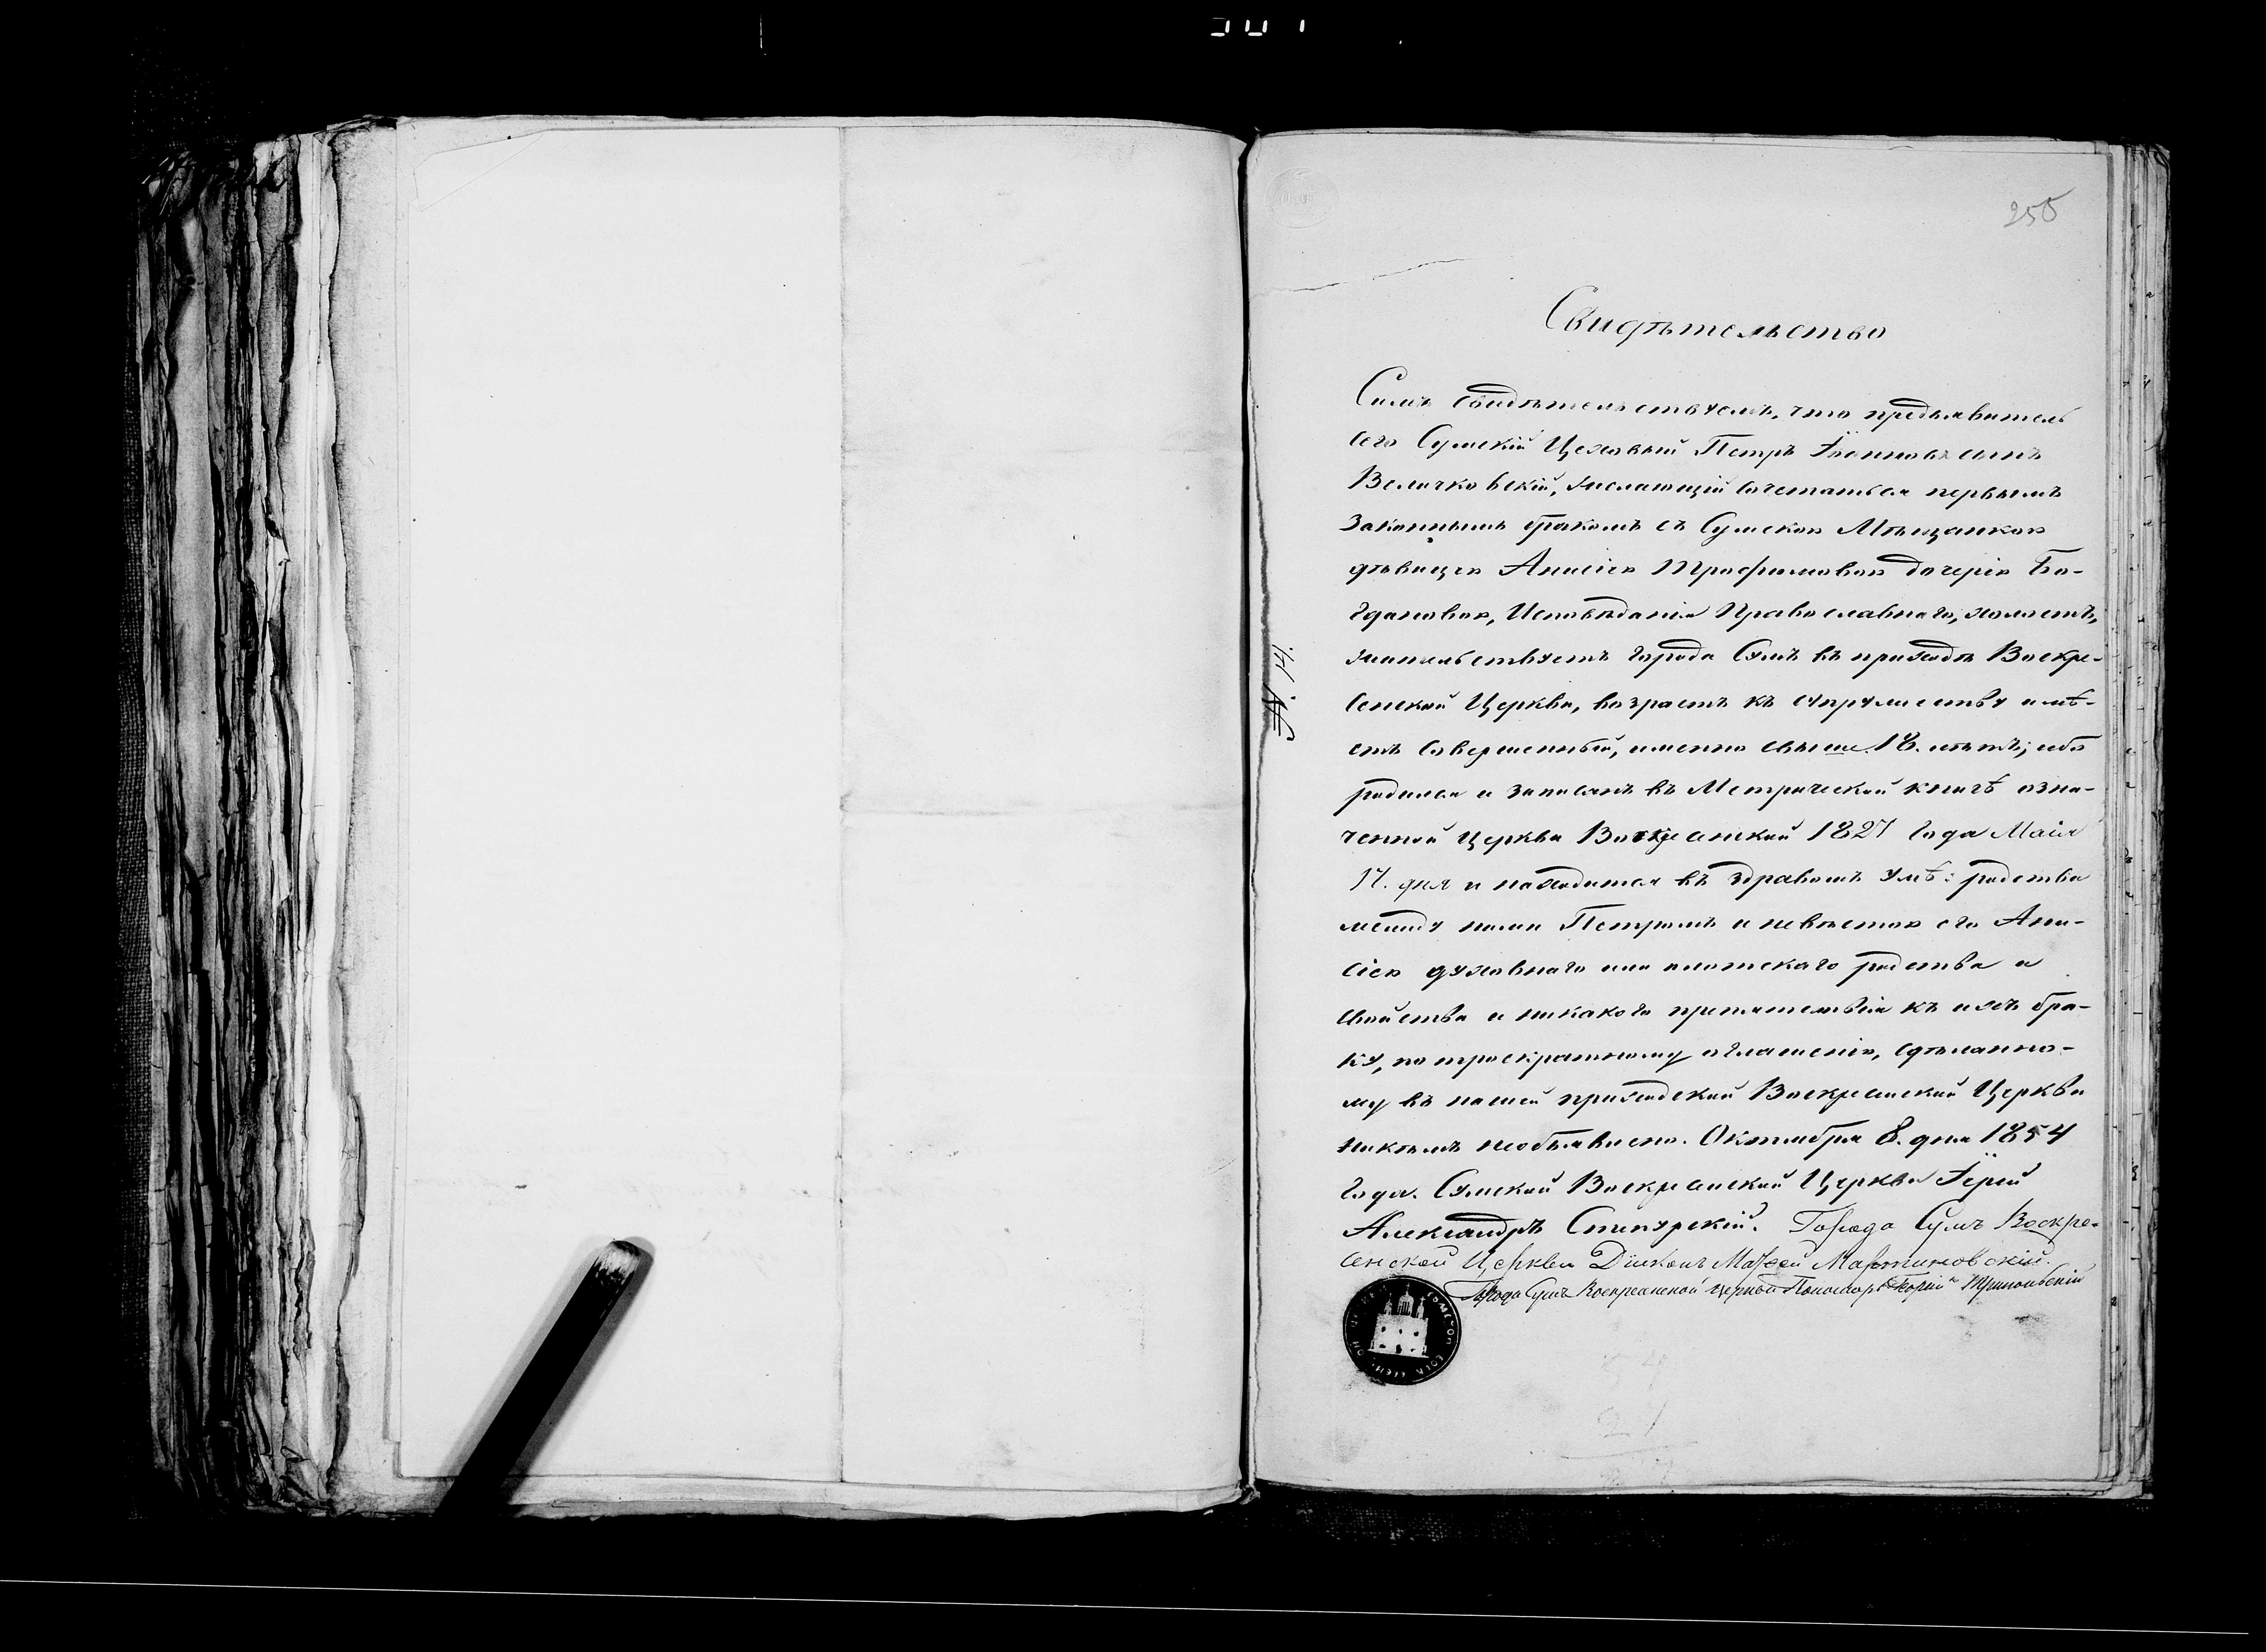 255
Свидѣтельство
Симъ свидѣтельствуемъ, что предъявитель
сего Сумскій Цеховый Петръ Іоанновъ сынъ
Величковскій, желающій сочетаться первымъ
Законнымъ бракомъ съ Сумскою Мѣщанкою
дѣвицею Анисіею Трофимовою дочерію Бо-
гдановою, Исповѣданія Православнаго, холостъ,
жительствуетъ города Сумъ въ приходѣ Воскре-
сенской Церкви, возрастъ къ супружеству имѣ-
етъ совершенный, именно свыше 18. лѣтъ; ибо
родился и записанъ въ Метрической книгѣ озна-
ченной Церкви Воскресенской 1827 года Маія
17. дня и находится въ здравомъ умѣ: родства
между ними Петромъ и невѣстою его Ани-
сіею духовнаго или плотскаго родства и
свойства и никакого препятствія къ ихъ бра-
ку, по троекратному оглашенію, сдѣланно-
му въ нашей приходской Воскресенской Церкви
никѣмъ необъявлено. Октября 8. дня 1854
года. Сумской Воскресенской Церкви Іерей
Александръ Степурскій. Города Сумъ Воскре-
сенской Церкви Діаконъ Матѳей Мартиновскій.
Города Сумъ Воскресенской церкви Пономарь
№ 14.